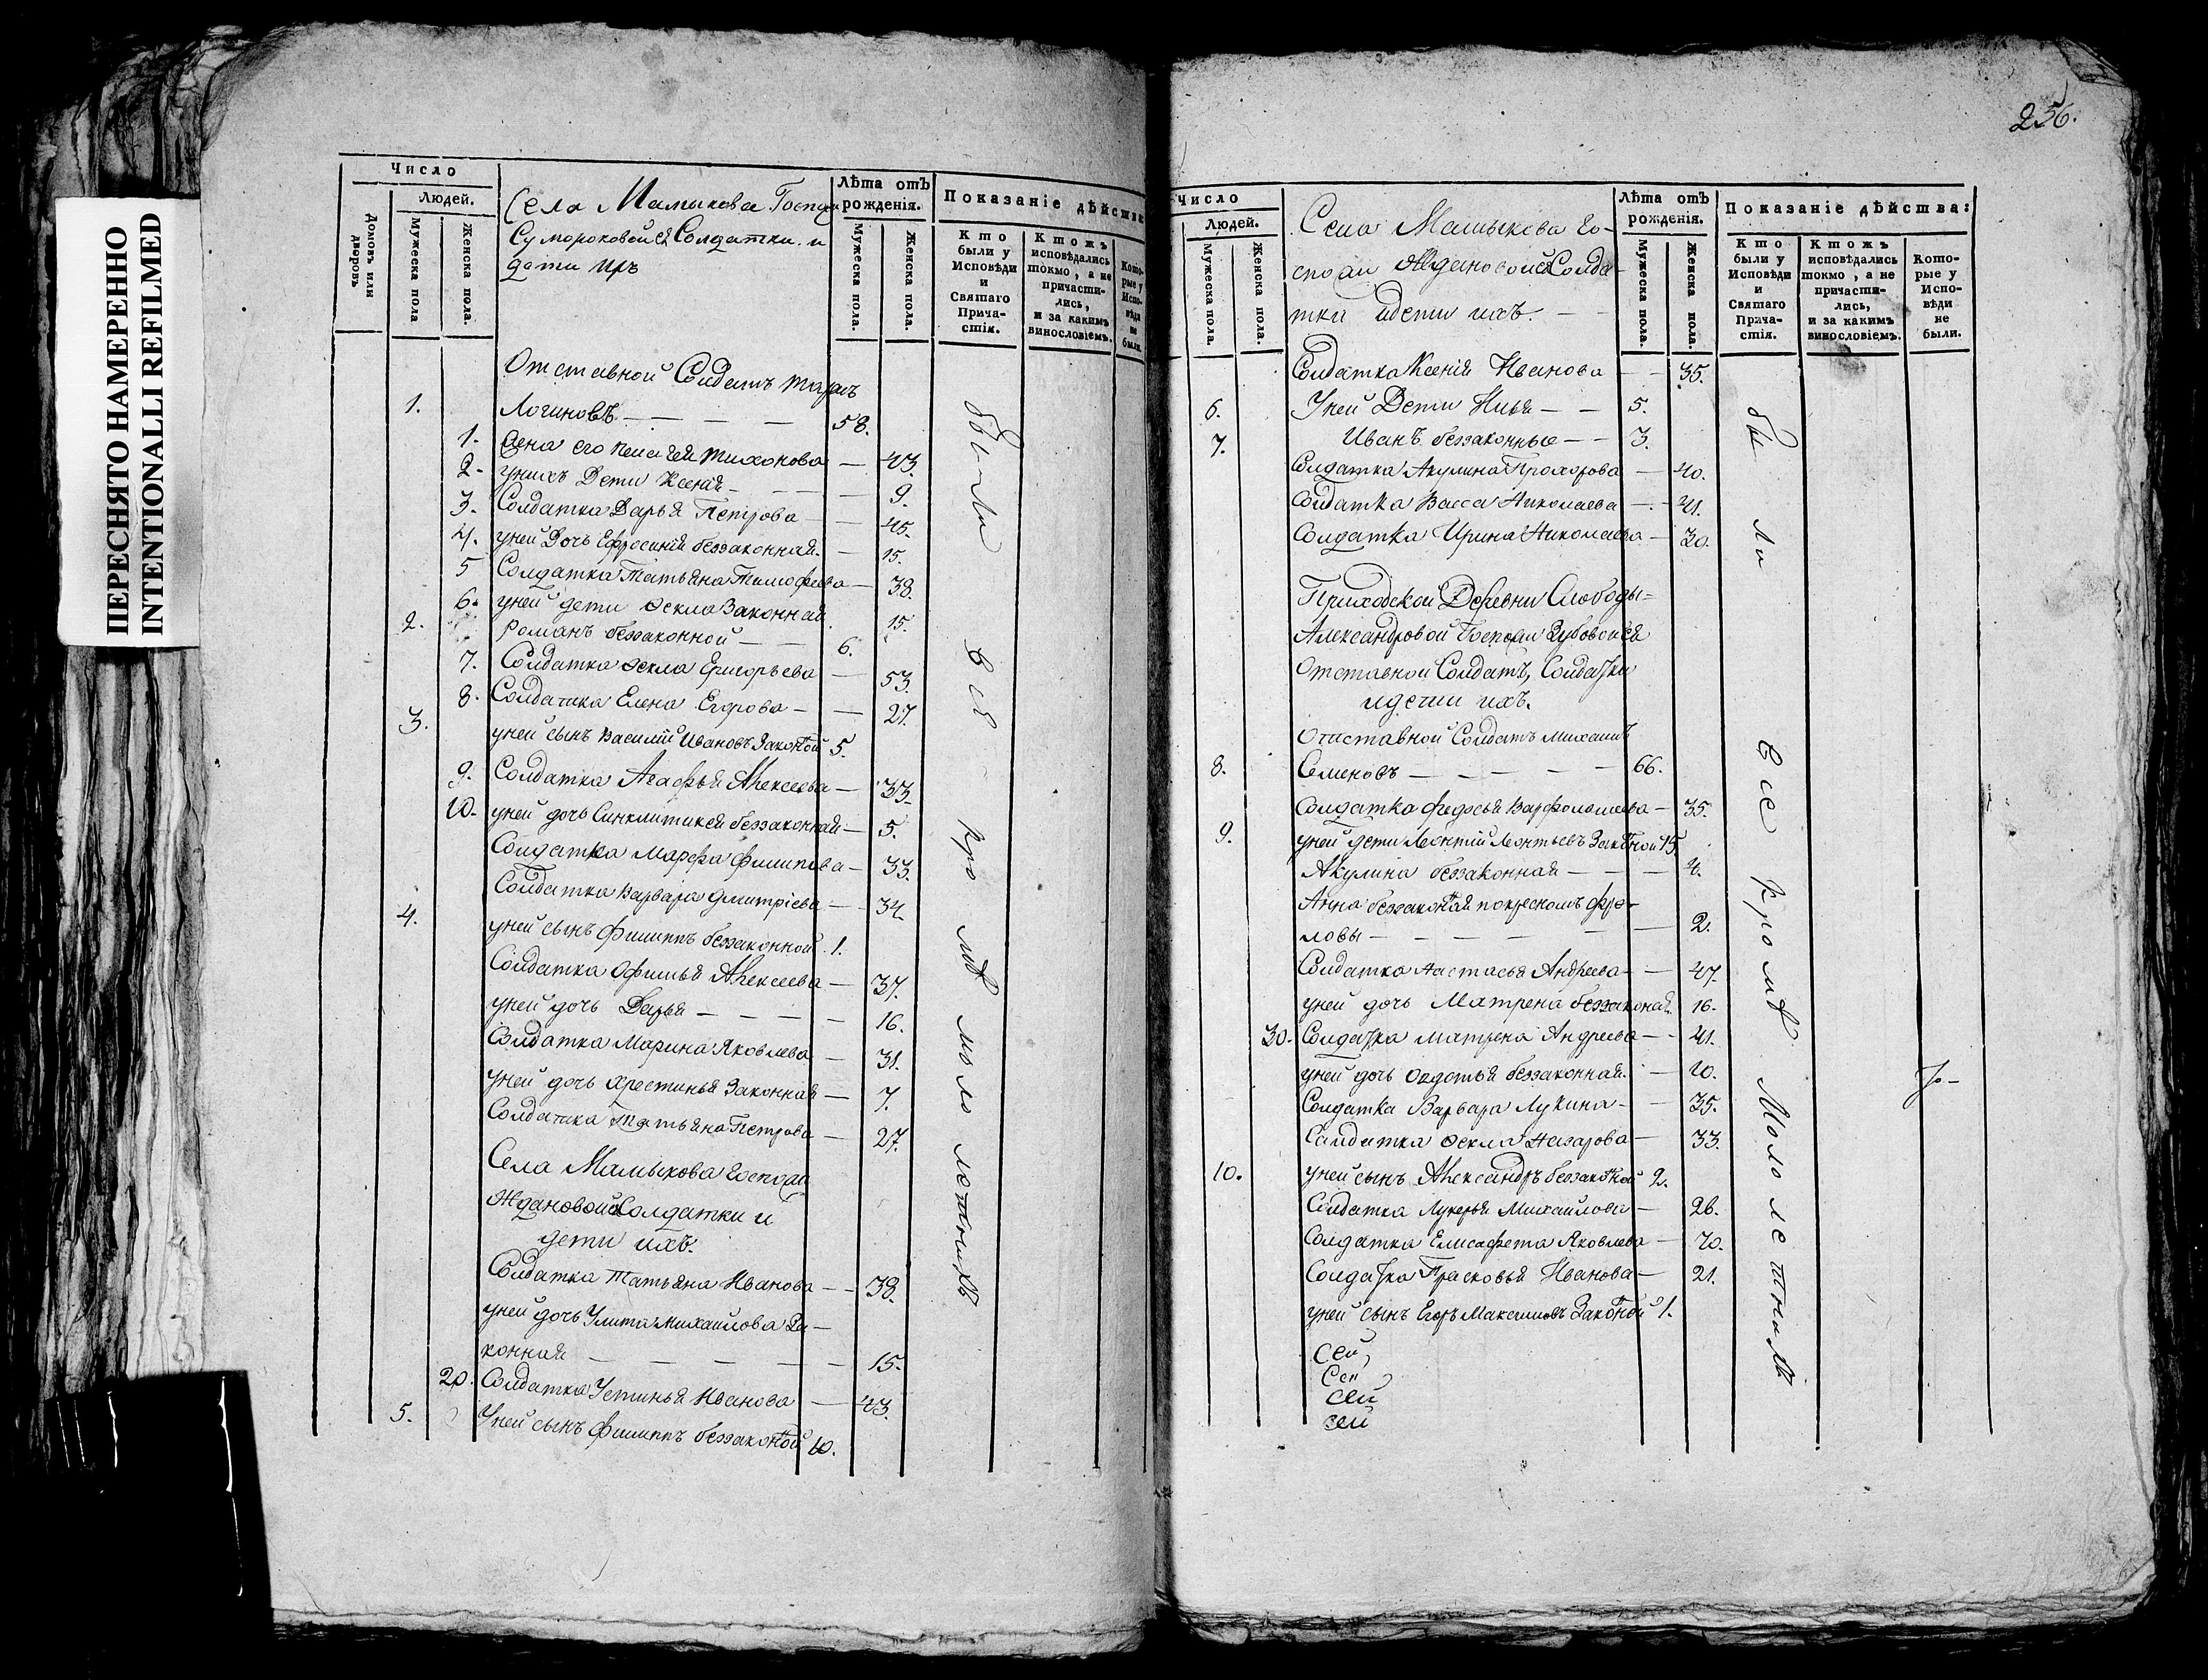 ПЕРЕСНЯТО НАМЕРЕННО
INTENTIONALLI REFILMED
Число
Людей.
Домовъ или дворовъ
Мужеска пола
Женска пола.
Села Мамыкова Госпжи
Сумороковой Солдатки и
дети ихъ
Лѣта отъ рожденія.
Мужеска пола.
Женска пола.
Показаніе дѣйств
Кто были у Исповѣди и Святаго Прича-стія.
Ктожъ исповѣдались токмо, а не причасти-лись, и за какимъ винословіемъ.
Кото-рые у Испо-вѣди не были.
Отставной Солдатъ
1. Логиновъ — — — 58.
1. Жена его Пелагея Тихонова — 43.
2. Унихъ Дети Ксения — — 9.
3. Солдатка Дарья Петрова — 45.
4. уней Дочь Ефросиния беззаконная — 15.
5 Солдатка Татьяна Тимофеева — 38.
6. уней дети Фекла Законная 15.
2. Романъ беззаконной — — 6.
7. Солдатка Фекла Григорьева — 53.
8. Солдатка Елена Егорова — — 27.
3. уней сынъ Василий Ивановъ Законной 5.
9. Солдатка Агафья Алексеева — 33.
10. уней дочь Синклитикея беззаконная — 5.
Солдатка Марфа Филипова — 33.
Солдатка Варвара Дмитріева — 34.
4. уней сынъ Филиппъ беззаконной 1.
Солдатка Офимья Алексеева — 37.
уней дочь Дарья — — — — 16.
Солдатка Марина Яковлева — 31.
уней дочь Хрестинья Законная — 7.
Солдатка Татьяна Петрова — 27.
Села Мамыкова Госпожи
Ждановой Солдатки и
дети ихъ.
Солдатка Татьяна Иванова — 38.
уней дочь Улита Михаилова За-
конная — — — — — 15.
20. Солдатка Устинья Иванова — 43.
5. Уней сынъ Филиппъ беззаконной 10.
были
все
кроме
малолетныхъ
256.
Число
Людей.
Мужеска пола.
Женска пола.
Села Мамыкова Го-
спожи Ждановой Солда-
тки идети ихъ. —
Лѣта отъ рожденія.
Мужеска пола.
Женска пола.
Показаніе дѣйства:
Кто были у Исповѣди и Святаго Прича-стія.
Ктожъ исповѣдались токмо, а не причасти-лись, и за какимъ винословіемъ.
Кото-рые у Испо-вѣди не были.
Солдатка Ксения Иванова — — 35.
6. Уней Дети Илья — — 5.
7. Иванъ беззаконные — — 3.
Солдатка Акулина Прохорова — 40.
Солдатка Васса Николаева — — 41.
Солдатка Ирина Николаева — 30.
Приходской Деревни Слободы=
Александровой Госпожи Зубовой
Отставной Солдатъ, Солдатки
идети ихъ.
Отставной Солдатъ Михаилъ
8. Семеновъ — — — — — 66.
Солдатка Федосья Варфоломеева — 35.
9. уней дети Леонтий Леонтьевъ Законной 15.
Акулина беззаконная — — — 4.
Анна беззаконная покресномъ фро-
ловы — — — — — — 2.
Солдатка Настасья Андреева — — 47.
уней дочь Матрена беззаконая 16.
30. Солдатка Матрена Андреева — — 41.
уней дочь Овдотья беззаконная — 10.
Солдатка Варвара Лукина — — 35.
Солдатка Фекла Назарова — 33.
10. уней сынъ Александръ беззаконой 2.
Солдатка Лукерья Михаилова — 26.
Солдатка Елисафета Яковлева — 70.
Солдатка Прасковья Иванова — 21.
уней сынъ Егоръ Максимовъ Законной 1.
Сей
Сей
Сей
сей
были
все
кроме
Малолетныхъ